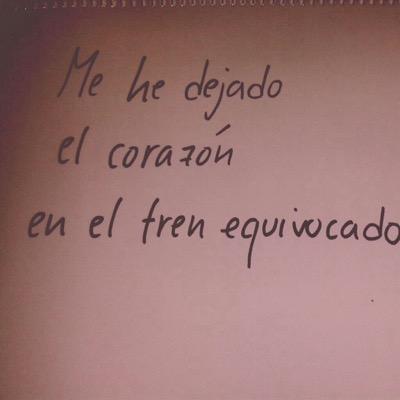 Me he dejado
el corazón
en el tren equivocado